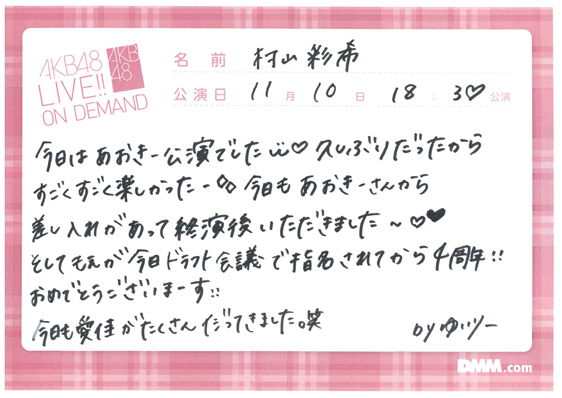 AKB48
LIVE!!
ON DEMAND
AKB
48
名前 村山彩希
公演日 11月10日 18:30♡公演
今日はあおきー公演でした♡久しぶりだったから
すごくすごく楽しかったー◇◇今日もあおきーさんから
差し入れがあって終演後いただきました～♡♥
そしてもえが今日ドラフト会議で指名されてから4周年!!
おめでとうございまーす!!
今日も愛佳がたくさんだってきました。笑
by ゆいりー
DMM.com